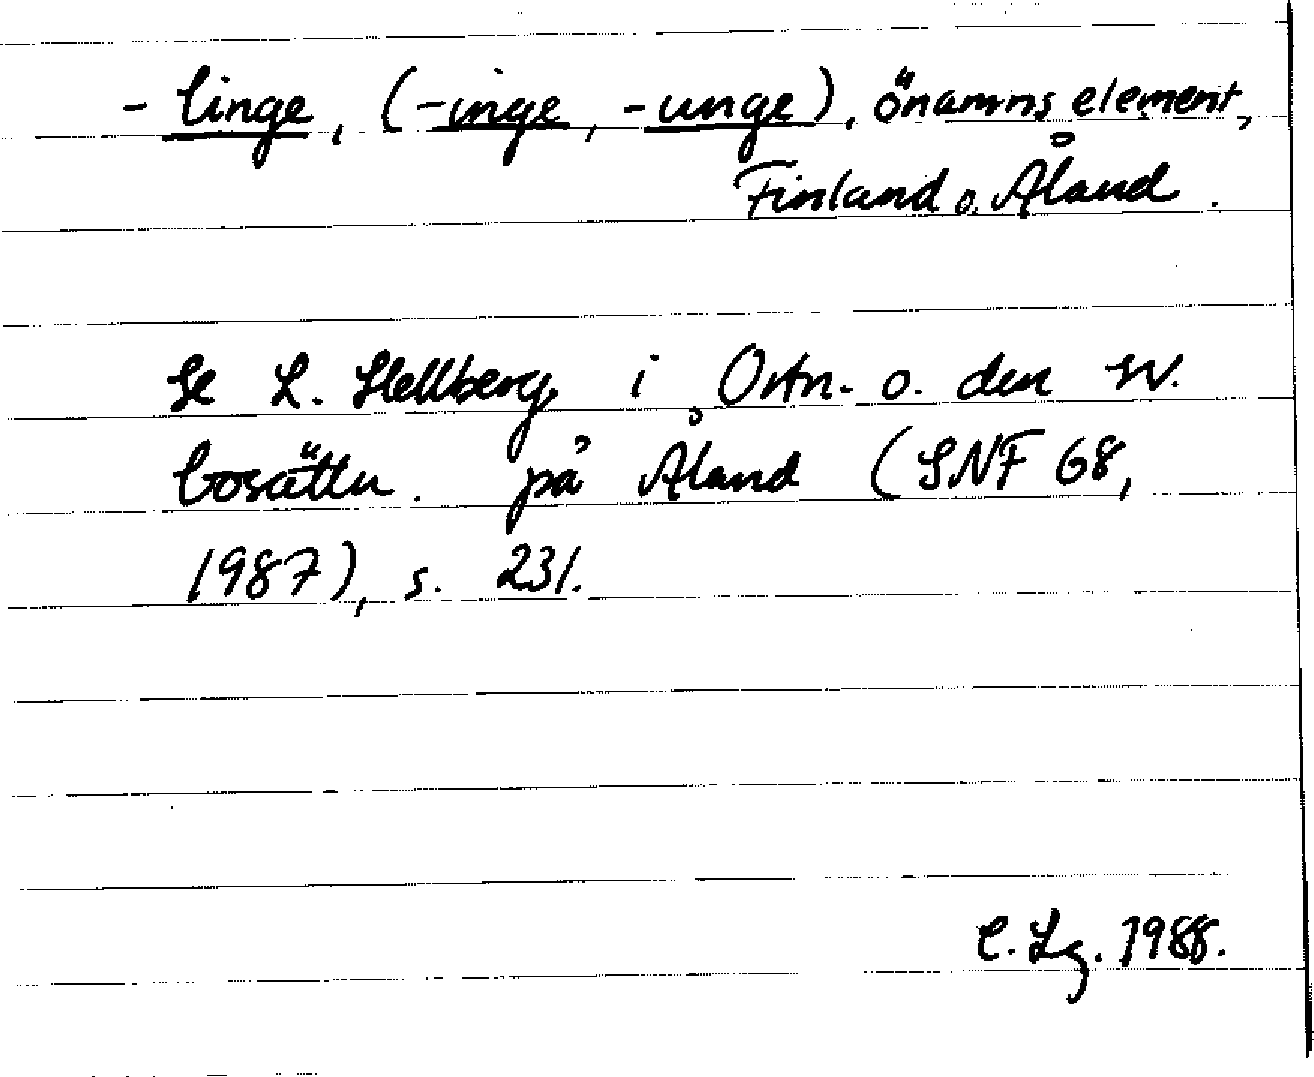 - linge, (-inge, -unge), önamnselement,
Finland o. Åland.
Se L. Hellberg i Ortn. o. den sv.
bosättn. på Åland (SNF 68,
1987), s. 231.
C. Lg. 1988.